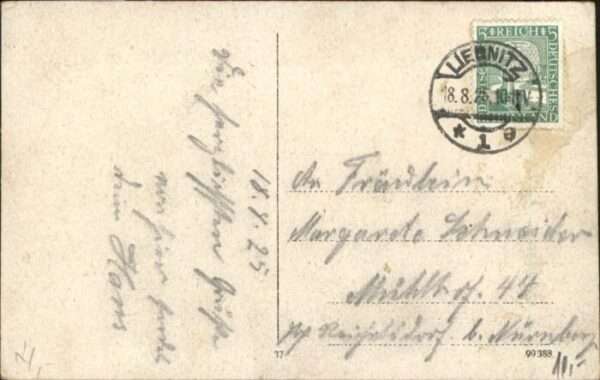 18.8.25
Die herzlichsten Grüße
von hier sendet
dein Hans
5 REICH 5
DEUTSCHES
LIEGNITZ
18.8.25. 10-11V
* 1 e
An Fräulein
Margarete Schneider
Mühlhof. 47
Reichelsdorf b. Nürnberg
77
99 388